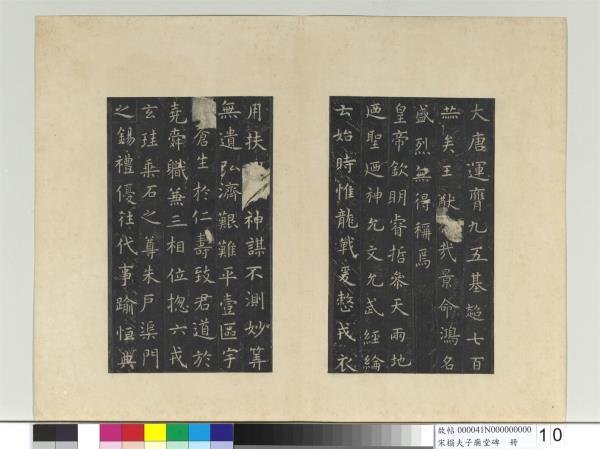 大唐運膺九五基超七百
赫矣王猷蒸哉景命鴻名
盛烈無得稱焉
皇帝欽明睿哲參天兩地
迺聖迺神允文允武經綸
云始時惟龍戰爰整戎衣
用扶 神謀不測妙筭
無遺弘濟艱難平壹區宇
蒼生於仁壽致君道於
堯舜職兼三相位揔六戎
玄珪乘石之尊朱戶渠門
之錫禮優往代事踰恒典
故帖 000041N000000000
宋榻夫子廟堂碑 冊
10